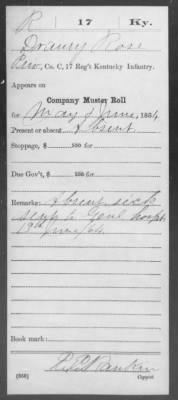 R 17 Ky.
Drawry Rose
Priv, Co. C, 17 Reg't Kentucky Infantry.
Appears on
Company Muster Roll
for May & June, 1864
Present or absent Absent
Stoppage, $ 100 for
Due Gov't, $ 100 for
Remarks: Absent sick
sent to Genl hospt.
19th June/64.
Book mark:
(858) Copyist.